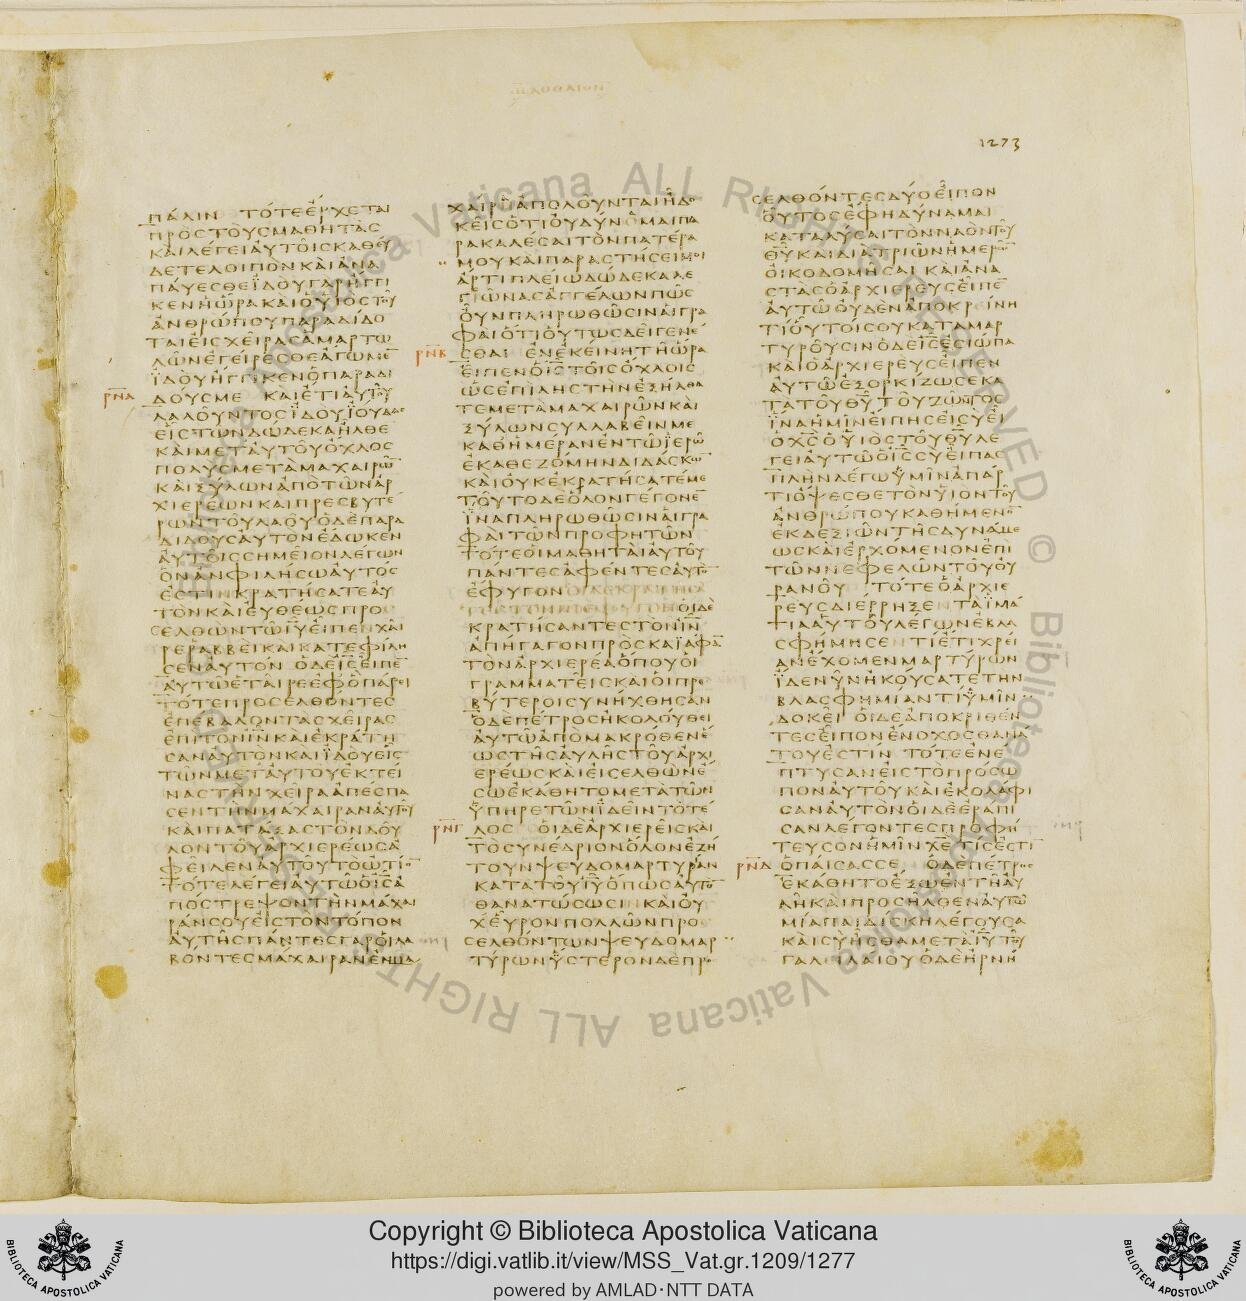 ΜΑΘΘΑΙΟΝ
1273
ΠΑΛΙΝ ΤΟΤΕΕΡΧΕΤΑΙ
ΠΡΟΣΤΟΥΣΜΑΘΗΤΑΣ
ΚΑΙΛΕΓΕΙΑΥΤΟΙΣΚΑΘΕΥ
ΔΕΤΕΛΟΙΠΟΝΚΑΙΑΝΑ
ΠΑΥΕΣΘΕΪΔΟΥΓΑΡΗΓΓΙ
ΚΕΝΗΩΡΑΚΑΙΟΥΙΟΣΤΟΥ
ΑΝΘΡΩΠΟΥΠΑΡΑΔΙΔΟ
ΤΑΙΕΙΣΧΕΙΡΑΣΑΜΑΡΤΩ
ΛΩΝΕΓΕΙΡΕΣΘΕΑΓΩΜΕ̅
ΪΔΟΥΗΓΓΙΚΕΝΟΠΑΡΑΔΙ
ΡΝΑ ΔΟΥΣΜΕ ΚΑΙΕΤΙΑΥΤΟΥ
ΛΑΛΟΥΝΤΟΣΪΔΟΥΪΟΥΔΑΣ
ΕΙΣΤΩΝΔΩΔΕΚΑΗΛΘΕ
ΚΑΙΜΕΤΑΥΤΟΥΟΧΛΟΣ
ΠΟΛΥΣΜΕΤΑΜΑΧΑΙΡΩ̅
ΚΑΙΞΥΛΩΝΑΠΟΤΩΝΑΡ
ΧΙΕΡΕΩΝΚΑΙΠΡΕΣΒΥΤΕ
ΡΩΝΤΟΥΛΑΟΥΟΔΕΠΑΡΑ
ΔΙΔΟΥΣΑΥΤΟΝΕΔΩΚΕΝ
ΑΥΤΟΙΣΣΗΜΕΙΟΝΛΕΓΩΝ
ΟΝΑΝΦΙΛΗΣΩΑΥΤΟΣ
ΕΣΤΙΝΚΡΑΤΗΣΑΤΕΑΥ
ΤΟΝΚΑΙΕΥΘΕΩΣΠΡΟ
ΣΕΛΘΩΝΤΩΙ̅Υ̅ΕΙΠΕΝΧΑΙ
ΡΕΡΑΒΒΕΙΚΑΙΚΑΤΕΦΙΛΗ
ΣΕΝΑΥΤΟΝ ΟΔΕΙ̅Σ̅ΕΙΠΕ̅
ΑΥΤΩΕΤΑΙΡΕΕΦΟΠΑΡΕΙ
ΤΟΤΕΠΡΟΣΕΛΘΟΝΤΕΣ
ΕΠΕΒΑΛΟΝΤΑΣΧΕΙΡΑΣ
ΕΠΙΤΟΝΙ̅Ν̅ΚΑΙΕΚΡΑΤΗ
ΣΑΝΑΥΤΟΝΚΑΙΪΔΟΥΕΙΣ
ΤΩΝΜΕΤΑΥΤΟΥΕΚΤΕΙ
ΝΑΣΤΗΝΧΕΙΡΑΑΠΕΣΠΑ
ΣΕΝΤΗΝΜΑΧΑΙΡΑΝΑΥΤΟΥ
ΚΑΙΠΑΤΑΞΑΣΤΟΝΔΟΥ
ΛΟΝΤΟΥΑΡΧΙΕΡΕΩΣΑ
ΦΕΙΛΕΝΑΥΤΟΥΤΟΩΤΙΟ̅
ΤΟΤΕΛΕΓΕΙΑΥΤΩΟΙ̅Σ̅Α
ΠΟΣΤΡΕΨΟΝΤΗΝΜΑΧΑΙ
ΡΑΝΣΟΥΕΙΣΤΟΝΤΟΠΟΝ
ΑΥΤΗΣΠΑΝΤΕΣΓΑΡΟΙΛΑ
ΒΟΝΤΕΣΜΑΧΑΙΡΑΝΕΝΜΑ
ΧΑΙΡΗΑΠΟΛΟΥΝΤΑΙΗΔΟ
ΚΕΙΣΟΤΙΟΥΔΥΝΟΜΑΙΠΑ
ΡΑΚΑΛΕΣΑΙΤΟΝΠΑΤΕΡΑ
ΜΟΥΚΑΙΠΑΡΑΣΤΗΣΕΙΜΟΙ
ΑΡΤΙΠΛΕΙΩΔΩΔΕΚΑΛΕ
ΓΙΩΝΑΣΑΓΓΕΛΩΝΠΩΣ
ΟΥΝΠΛΗΡΩΘΩΣΙΝΑΙΓΡΑ
ΦΑΙΟΤΙΟΥΤΩΣΔΕΙΓΕΝΕ
ΡΝΒ ΣΘΑΙ ΕΝΕΚΕΙΝΗΤΗΩΡΑ
ΕΙΠΕΝΟΙ̅Σ̅ΤΟΙΣΟΧΛΟΙΣ
ΩΣΕΠΙΛΗΣΤΗΝΕΞΗΛΘΑ
ΤΕΜΕΤΑΜΑΧΑΙΡΩΝΚΑΙ
ΞΥΛΩΝΣΥΛΛΑΒΕΙΝΜΕ
ΚΑΘΗΜΕΡΑΝΕΝΤΩΙΕΡΩ
ΕΚΑΘΕΖΟΜΗΝΔΙΔΑΣΚΩ̅
ΚΑΙΟΥΚΕΚΡΑΤΗΣΑΤΕΜΕ
ΤΟΥΤΟΔΕΟΛΟΝΓΕΓΟΝΕ̅
ΪΝΑΠΛΗΡΩΘΩΣΙΝΑΙΓΡΑ
ΦΑΙΤΩΝΠΡΟΦΗΤΩΝ
ΤΟΤΕΟΙΜΑΘΗΤΑΙΑΥΤΟΥ
ΠΑΝΤΕΣΑΦΕΝΤΕΣΑΥΤΟ̅
ΕΦΥΓΟΝ
ΟΙΔΕ
ΚΡΑΤΗΣΑΝΤΕΣΤΟΝΙ̅Ν̅
ΑΠΗΓΑΓΟΝΠΡΟΣΚΑΪΑΦΑ̅
ΤΟΝΑΡΧΙΕΡΕΑΟΠΟΥΟΙ
ΓΡΑΜΜΑΤΕΙΣΚΑΙΟΙΠΡΕΣ
ΒΥΤΕΡΟΙΣΥΝΗΧΘΗΣΑΝ
ΟΔΕΠΕΤΡΟΣΗΚΟΛΟΥΘΕΙ
ΑΥΤΩΑΠΟΜΑΚΡΟΘΕΝΕ
ΩΣΤΗΣΑΥΛΗΣΤΟΥΑΡΧΙ
ΕΡΕΩΣΚΑΙΕΙΣΕΛΘΩΝΕ
ΣΩΕΚΑΘΗΤΟΜΕΤΑΤΩΝ
ΥΠΗΡΕΤΩΝΪΔΕΙΝΤΟΤΕ
ΡΝΓ ΛΟΣ ΟΙΔΕΑΡΧΙΕΡΕΙΣΚΑΙ
ΤΟΣΥΝΕΔΡΙΟΝΟΛΟΝΕΖΗ
ΤΟΥΝΨΕΥΔΟΜΑΡΤΥΡΙΑΝ
ΚΑΤΑΤΟΥΙ̅Υ̅ΟΠΩΣΑΥΤΟ̅
ΘΑΝΑΤΩΣΩΣΙΝΚΑΙΟΥ
ΧΕΥΡΟΝΠΟΛΛΩΝΠΡΟ
ΣΕΛΘΟΝΤΩΝΨΕΥΔΟΜΑΡ
ΤΥΡΩΝΫΣΤΕΡΟΝΔΕΠΡΟ
ΣΕΛΘΟΝΤΕΣΔΥΟΕΙΠΟΝ
ΟΥΤΟΣΕΦΗΔΥΝΑΜΑΙ
ΚΑΤΑΛΥΣΑΙΤΟΝΝΑΟΝΤΟΥ
Θ̅Υ̅ΚΑΙΔΙΑΤΡΙΩΝΗΜΕΡΩ̅
ΟΙΚΟΔΟΜΗΣΑΙ ΚΑΙΑΝΑ
ΣΤΑΣΟΑΡΧΙΕΡΕΥΣΕΙΠΕ̅
ΑΥΤΩΟΥΔΕΝΑΠΟΚΡΕΙΝΗ
ΤΙΟΥΤΟΙΣΟΥΚΑΤΑΜΑΡ
ΤΥΡΟΥΣΙΝΟΔΕΙ̅Σ̅ΕΣΙΩΠΑ
ΚΑΙΟΑΡΧΙΕΡΕΥΣΕΙΠΕΝ
ΑΥΤΩΕΞΟΡΚΙΖΩΣΕΚΑ
ΤΑΤΟΥΘ̅Υ̅ΤΟΥΖΩΝΤΟΣ
ΪΝΑΗΜΙΝΕΙΠΗΣΕΙΣΥΕΙ
ΟΧ̅Σ̅ΟΥΙΟΣΤΟΥΘ̅Υ̅ΛΕ
ΓΕΙΑΥΤΩΟΙ̅Σ̅ΣΥΕΙΠΑΣ
ΠΛΗΝΛΕΓΩΫΜΙΝΑΠΑΡ
ΤΙΟΨΕΣΘΕΤΟΝΥΙΟΝΤΟΥ
ΑΝΘΡΩΠΟΥΚΑΘΗΜΕΝΟ̅
ΕΚΔΕΞΙΩΝΤΗΣΔΥΝΑΜΕ
ΩΣΚΑΙΕΡΧΟΜΕΝΟΝΕΠΙ
ΤΩΝΝΕΦΕΛΩΝΤΟΥΟΥ
ΡΑΝΟΥ ΤΟΤΕΟΑΡΧΙΕ
ΡΕΥΣΔΙΕΡΡΗΞΕΝΤΑΪΜΑ
ΤΙΑΑΥΤΟΥΛΕΓΩΝΕΒΛΑ
ΣΦΗΜΗΣΕΝΤΙΕΤΙΧΡΕΙ
ΑΝΕΧΟΜΕΝΜΑΡΤΥΡΩΝ
ΪΔΕΝΥΝΗΚΟΥΣΑΤΕΤΗΝ
ΒΛΑΣΦΗΜΙΑΝΤΙΫΜΙΝ
ΔΟΚΕΙ ΟΙΔΕΑΠΟΚΡΙΘΕΝ
ΤΕΣΕΙΠΟΝΕΝΟΧΟΣΘΑΝΑ
ΤΟΥΕΣΤΙΝ ΤΟΤΕΕΝΕ
ΠΤΥΣΑΝΕΙΣΤΟΠΡΟΣΩ
ΠΟΝΑΥΤΟΥΚΑΙΕΚΟΛΑΦΙ
ΣΑΝΑΥΤΟΝΟΙΔΕΕΡΑΠΙ
ΣΑΝΛΕΓΟΝΤΕΣΠΡΟΦΗ
ΤΕΥΣΟΝΗΜΙΝΧ̅Ε̅ΤΙΣΕΣΤΙ
ΡΝΔ ΟΠΑΙΣΑΣΣΕ ΟΔΕΠΕΤΡΟΣ
ΕΚΑΘΗΤΟΕΞΩΕΝΤΗΑΥ
ΛΗΚΑΙΠΡΟΣΗΛΘΕΝΑΥΤΩ
ΜΙΑΠΑΙΔΙΣΚΗΛΕΓΟΥΣΑ
ΚΑΙΣΥΗΣΘΑΜΕΤΑΙ̅Υ̅ΤΟΥ
ΓΑΛΕΙΛΑΙΟΥΟΔΕΗΡΝΗ
Vaticana ALL RIGHTS RESERVED © Biblioteca Apostolica Vaticana ALL RIGHTS
BIBLIOTECA APOSTOLICA VATICANA
Copyright © Biblioteca Apostolica Vaticana
https://digi.vatlib.it/view/MSS_Vat.gr.1209/1277
powered by AMLAD·NTT DATA
BIBLIOTECA APOSTOLICA VATICANA